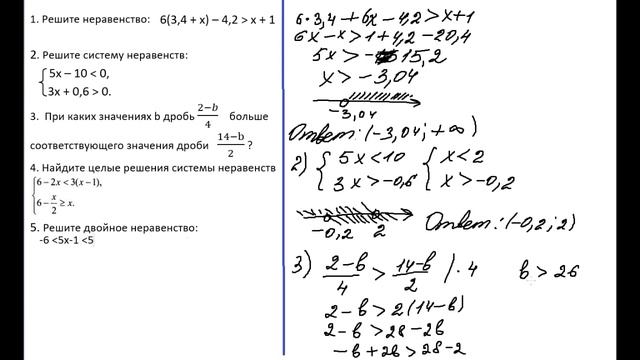 1. Решите неравенство: 6(3,4 + x) – 4,2 > x + 1
2. Решите систему неравенств:
5x – 10 < 0,
3x + 0,6 > 0.
3. При каких значениях b дробь (2−b)/4 больше
соответствующего значения дроби (14−b)/2 ?
4. Найдите целые решения системы неравенств
6 – 2x < 3(x – 1),
6 – x/2 ≥ x.
5. Решите двойное неравенство:
-6 <5x-1 <5
6·3,4 + 6x – 4,2 > x+1
6x – x > 1 + 4,2 – 20,4
5x > –15,2
x > – 3,04
–3,04
Ответ: (–3,04; +∞)
2) { 5x < 10 { x < 2
3x > –0,6 x > –0,2
–0,2 2 Ответ: (–0,2; 2)
3) (2–b)/4 > (14–b)/2 | · 4 b > 26
2 – b > 2(14 – b)
2 – b > 28 – 2b
– b + 2b > 28 – 2